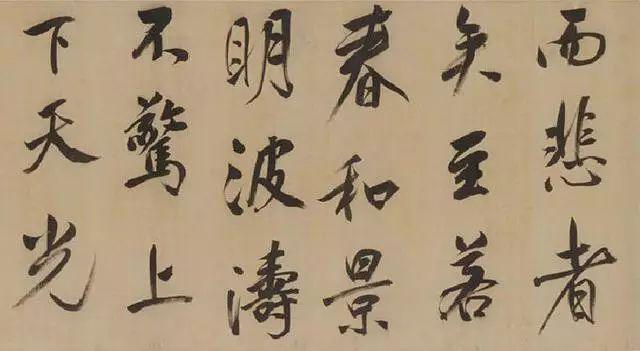 而悲者
矣至若
春和景
明波濤
不驚上
下天光